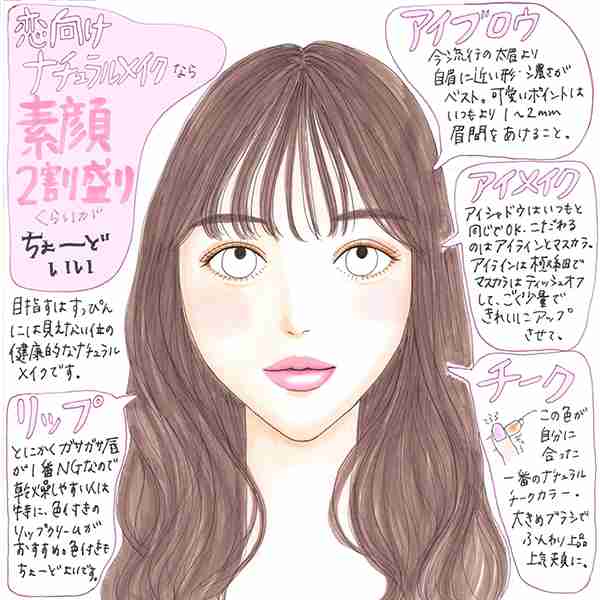 恋向け
ナチュラルメイクなら
素顔
2割盛り
くらいが
ちょーど
いい
目指すはすっぴん
には見えない位の
健康的なナチュラル
メイクです。
アイブロウ
今流行の太眉より
自眉に近い形・濃さが
ベスト。可愛いポイントは
いつもより1〜2mm
眉間をあけること。
アイメイク
アイシャドウはいつもと
同じでOK。こだわる
のはアイラインとマスカラ。
アイラインは極細で
マスカラはティッシュオフ
して、ごく少量で
きれいにアップ
させて。
チーク
この色が
自分に
合った
一番のナチュラル
チークカラー。
大きめブラシで
ふんわり上品
上気頬に。
リップ
とにかくガサガサ唇
が1番NGなので
乾燥しやすい人は
特に、色付きの
リップクリームが
おすすめ。色付きも
ちょーどよいです。